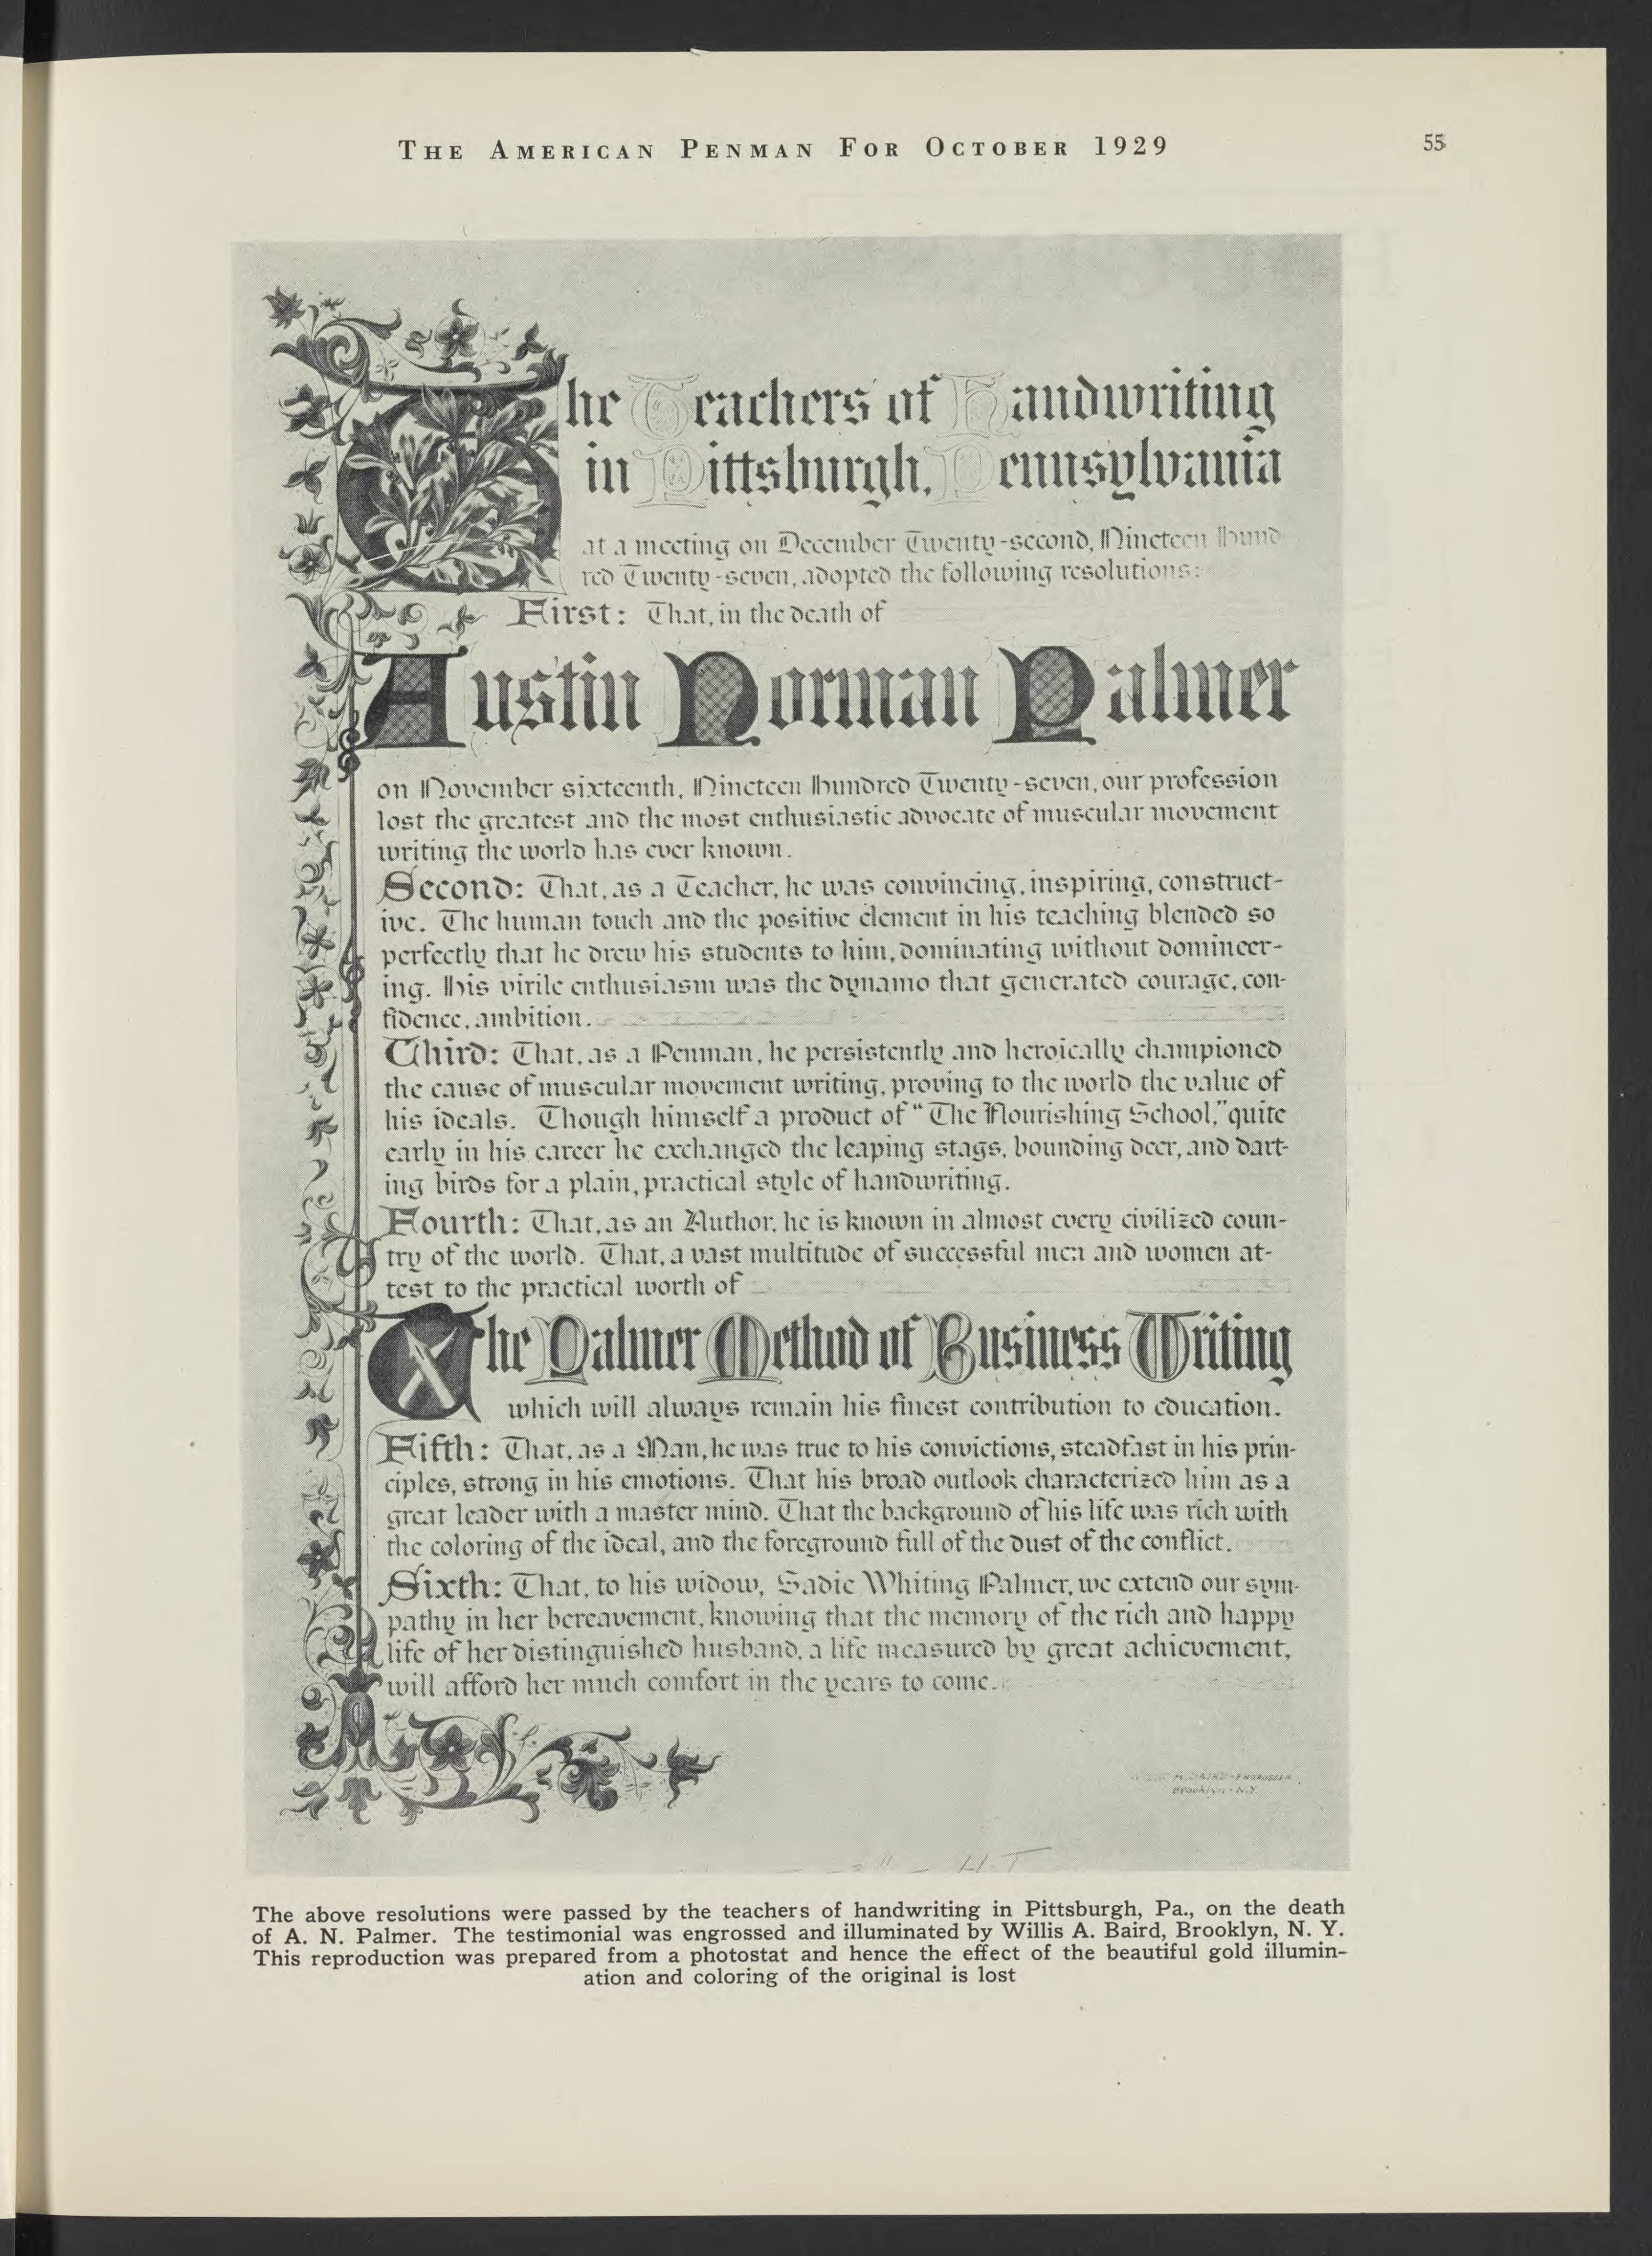 THE AMERICAN PENMAN FOR OCTOBER 1929
55
The Teachers of Handwriting
in Pittsburgh, Pennsylvania
at a meeting on December Twenty-second, Nineteen Hund
red Twenty-seven, adopted the following resolutions:
First: That, in the death of
Austin Norman Palmer
on November sixteenth, Nineteen Hundred Twenty-seven, our profession
lost the greatest and the most enthusiastic advocate of muscular movement
writing the world has ever known.
Second: That, as a Teacher, he was convincing, inspiring, construct-
ive. The human touch and the positive element in his teaching blended so
perfectly that he drew his students to him, dominating without domineer-
ing. His virile enthusiasm was the dynamo that generated courage, con-
fidence, ambition.
Third: That, as a Penman, he persistently and heroically championed
the cause of muscular movement writing, proving to the world the value of
his ideals. Though himself a product of "The Flourishing School," quite
early in his career he exchanged the leaping stags, bounding deer, and dart-
ing birds for a plain, practical style of handwriting.
Fourth: That, as an Author, he is known in almost every civilized coun-
try of the world. That, a vast multitude of successful men and women at-
test to the practical worth of
The Palmer Method of Business Writing
which will always remain his finest contribution to education.
Fifth: That, as a Man, he was true to his convictions, steadfast in his prin-
ciples, strong in his emotions. That his broad outlook characterized him as a
great leader with a master mind. That the background of his life was rich with
the coloring of the ideal, and the foreground full of the dust of the conflict.
Sixth: That, to his widow, Sadie Whiting Palmer, we extend our sym-
pathy in her bereavement, knowing that the memory of the rich and happy
life of her distinguished husband, a life measured by great achievement,
will afford her much comfort in the years to come.
A. BAIRD - ENGROSSER
Brooklyn - N.Y.
The above resolutions were passed by the teachers of handwriting in Pittsburgh, Pa., on the death
of A. N. Palmer. The testimonial was engrossed and illuminated by Willis A. Baird, Brooklyn, N. Y.
This reproduction was prepared from a photostat and hence the effect of the beautiful gold illumin-
ation and coloring of the original is lost